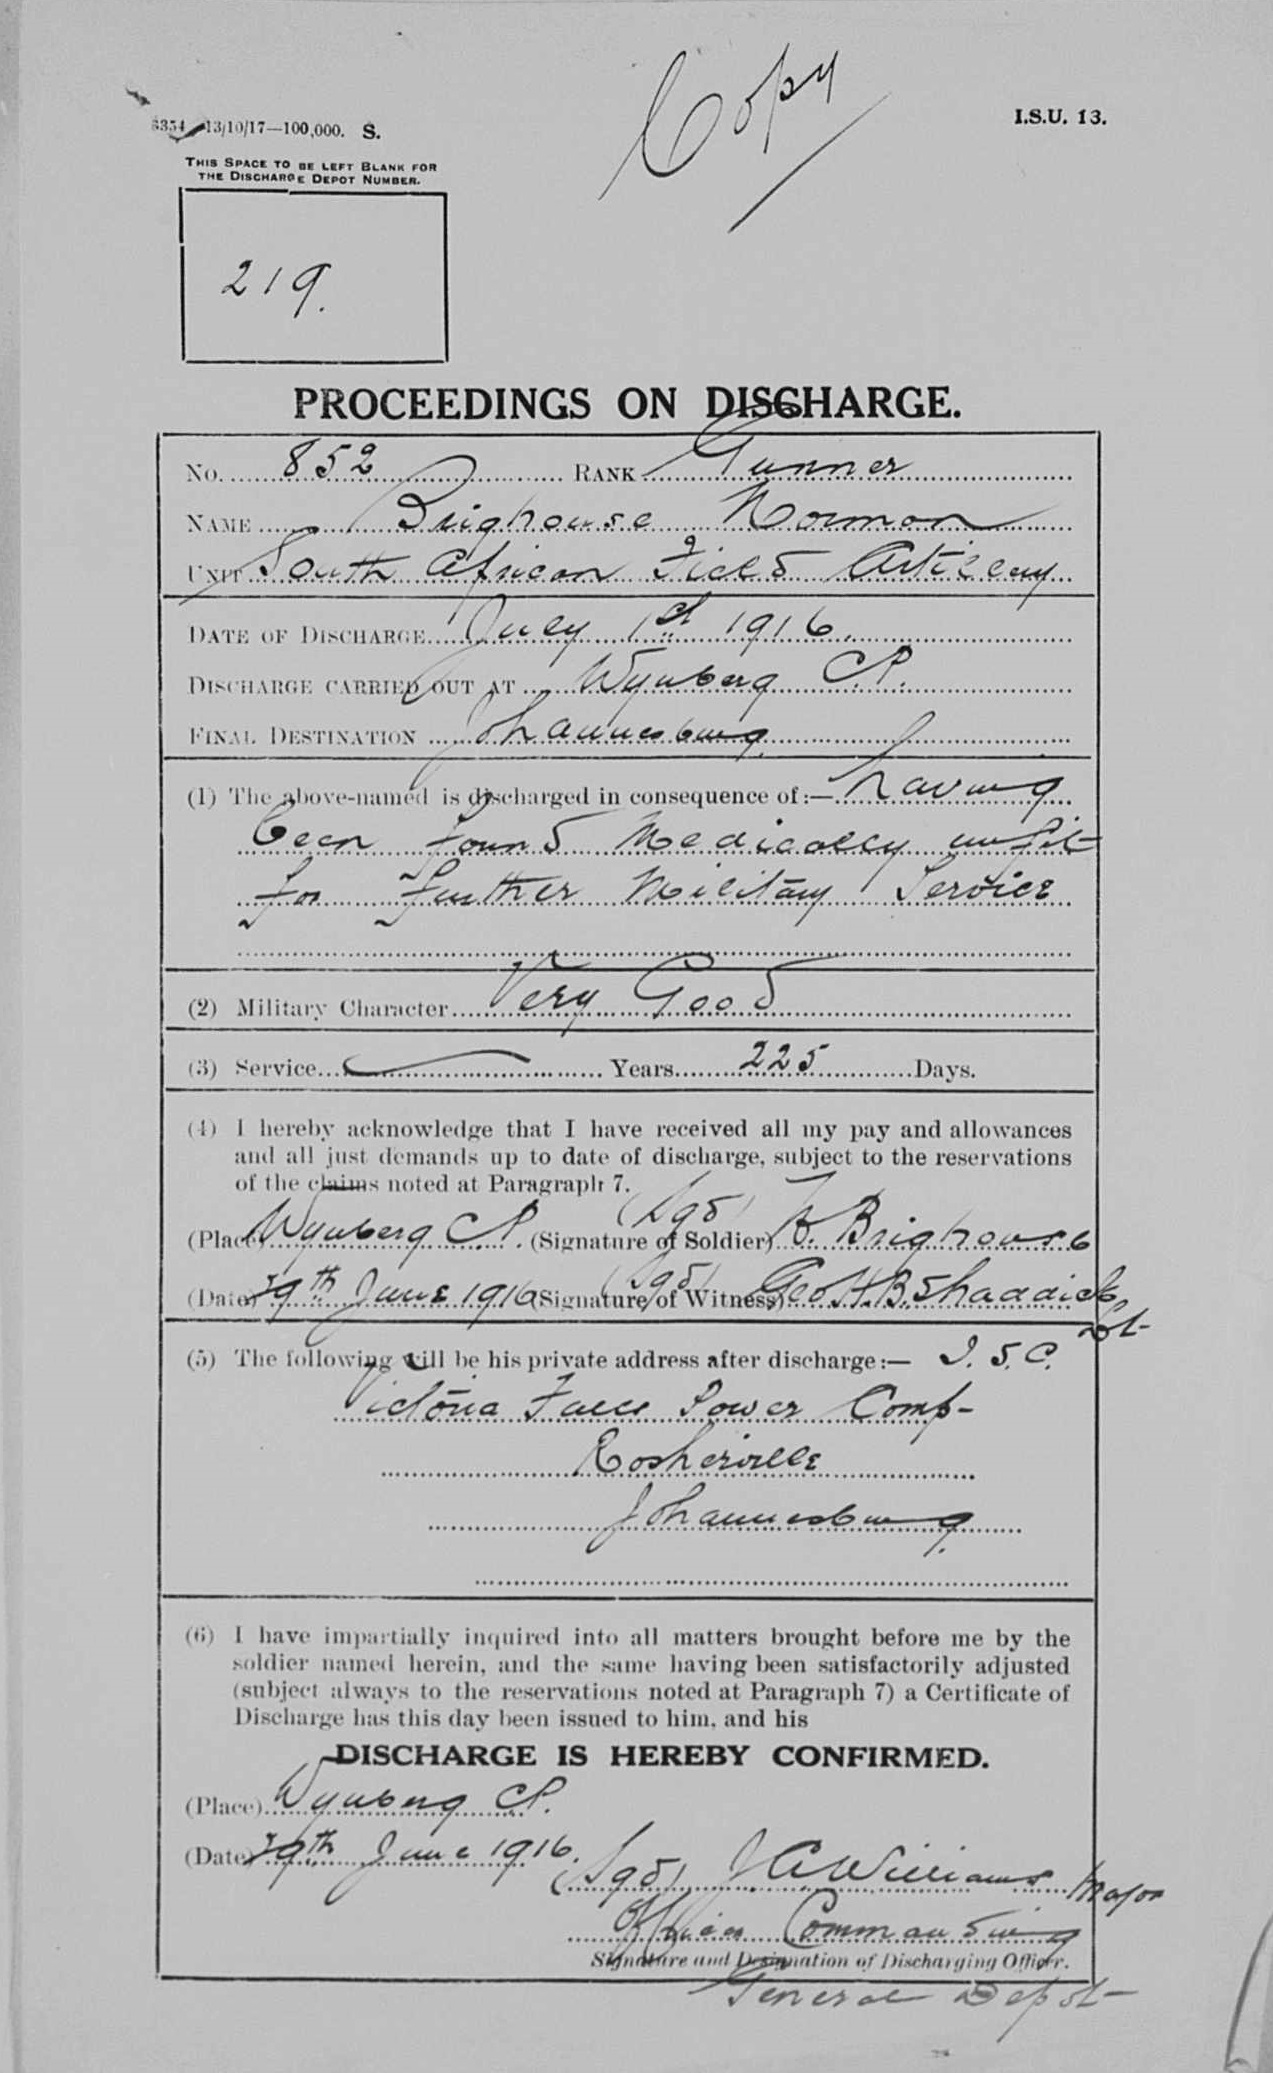 Copy
I.S.U. 13.
13/10/17—100,000. S.
THIS SPACE TO BE LEFT BLANK FOR
THE DISCHARGE DEPOT NUMBER.
219.
PROCEEDINGS ON DISCHARGE.
No. 852 RANK Gunner
NAME Brighouse Norman
UNIT South African Field Artillery
DATE OF DISCHARGE July 1st 1916.
DISCHARGE CARRIED OUT AT Wynberg C.P.
FINAL DESTINATION Johannesburg
(1) The above-named is discharged in consequence of:— having
been found Medically unfit
for further Military Service
(2) Military Character Very Good
(3) Service Years 225 Days.
(4) I hereby acknowledge that I have received all my pay and allowances
and all just demands up to date of discharge, subject to the reservations
of the claims noted at Paragraph 7.
(Place) Wynberg C.P. (Signature of Soldier) (Sgd) N. Brighouse
(Date) 29th June 1916 (Signature of Witness) (Sgd) Geo H. B. Shaddick
Lt
(5) The following will be his private address after discharge:— I.S.C.
Victoria Falls Power Comp-
Rosherville
Johannesburg.
(6) I have impartially inquired into all matters brought before me by the
soldier named herein, and the same having been satisfactorily adjusted
(subject always to the reservations noted at Paragraph 7) a Certificate of
Discharge has this day been issued to him, and his
DISCHARGE IS HEREBY CONFIRMED.
(Place) Wynberg C.P.
(Date) 29th June 1916.
(Sgd) J A Williams Major
Officer Commanding
Signature and Designation of Discharging Officer.
General Depot